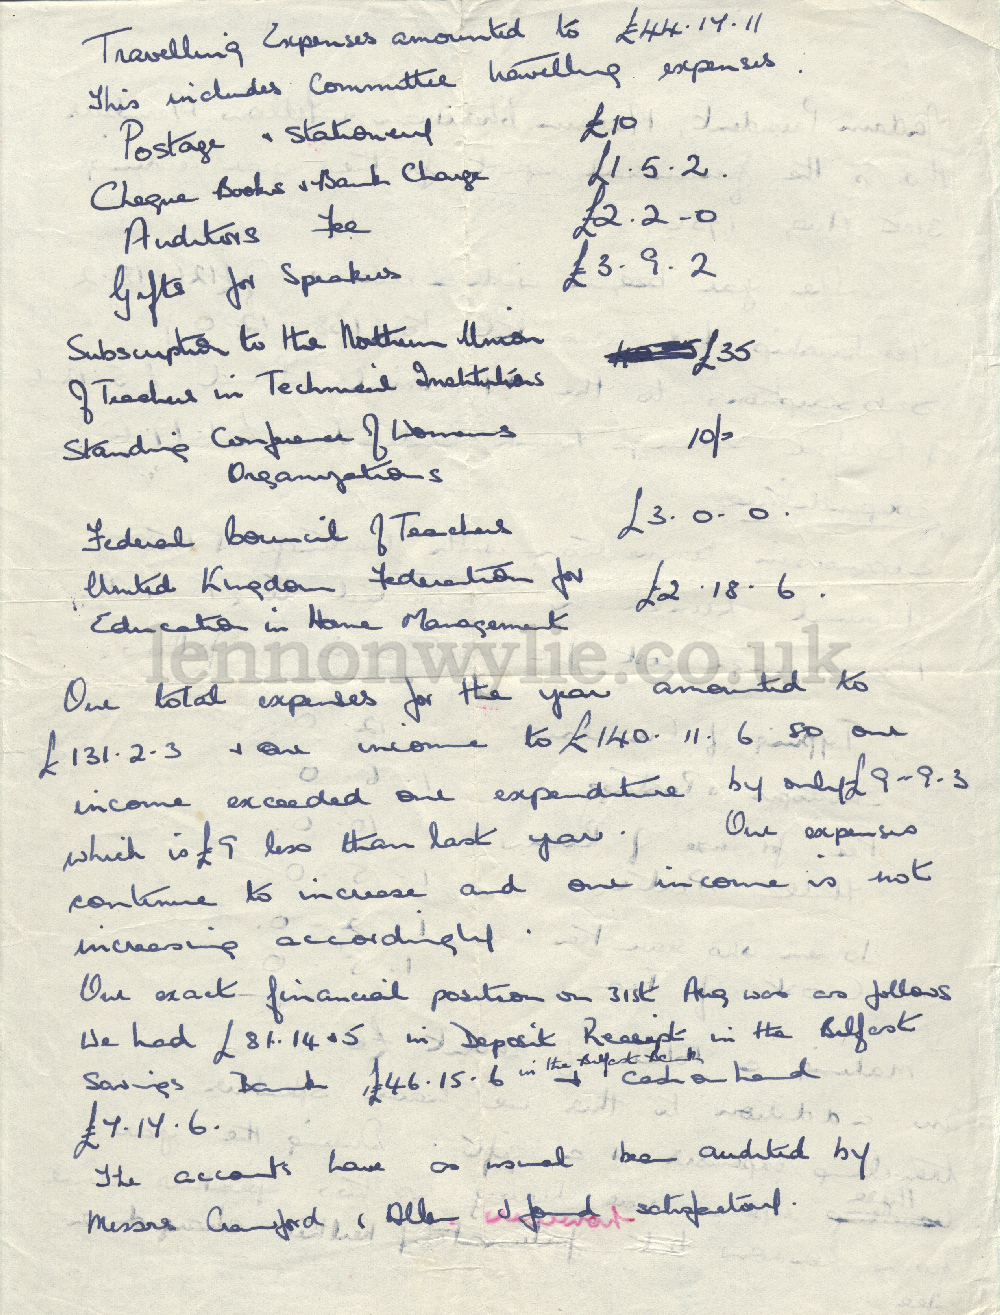 Travelling Expenses amounted to £44.17.11
This includes Committee travelling expenses.
Postage & Stationery £10
Cheque Books & Bank Charge £1.5.2.
Auditors Fee £2.2-0
Gifts for Speakers £3.9.2
Subscription to the Northern Union £35
of Teachers in Technical Institutions
Standing Conference of Womens 10/=
Organizations
Federal Council of Teachers £3.0.0.
United Kingdom Federation for £2.18.6.
Education in Home Management
lennonwylie.co.uk
Our total expenses for the year amounted to
£131.2.3 & our income to £140.11.6 so our
income exceeded our expenditure by only £9-9.3
which is £9 less than last year. Our expenses
continue to increase and our income is not
increasing accordingly.
Our exact financial position on 31st Aug was as follows
We had £81.14.5 in Deposit Receipt in the Belfast
Savings Bank £46.15.6 in the Belfast Bank & cash on hand
£7.17.6.
The accounts have as usual been audited by
Messrs Crawford & Allen & found satisfactory.